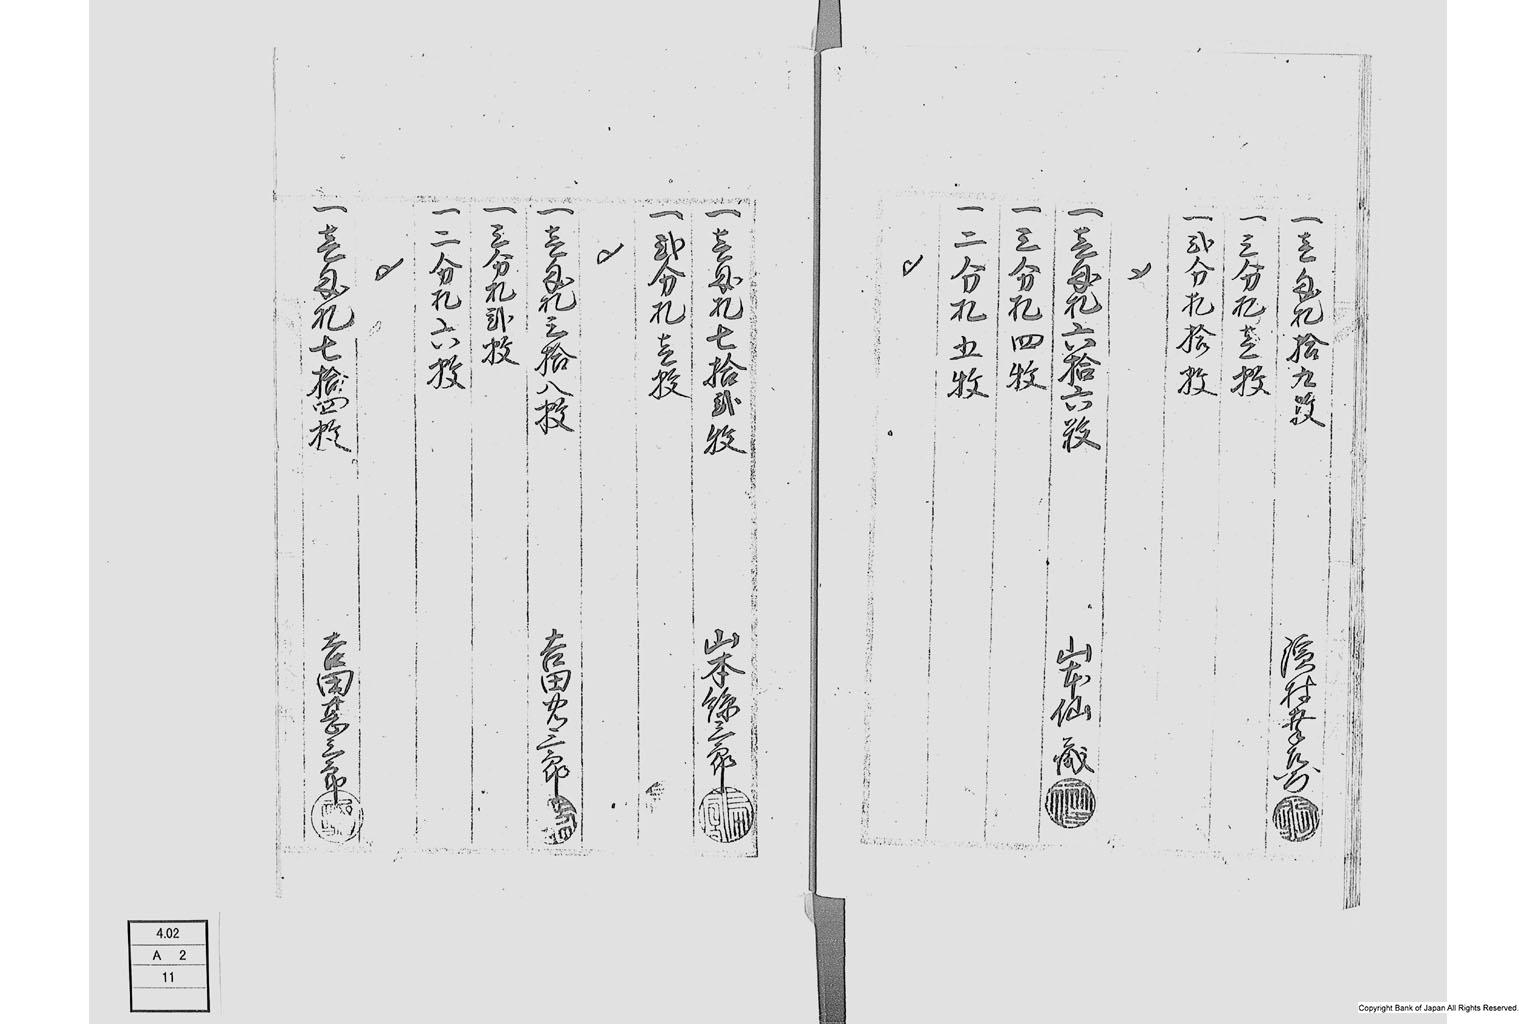 一壱匁札拾九枚
濱村
一三分札壱枚
一弐分札拾枚
一壱匁札六拾六枚
山本仙蔵
一三分札四枚
一二分札五枚
一壱匁札七拾弐枚
山本 三郎
一弐分札壱枚
一壱匁札三拾八枚
吉田 三郎
一三分札弐枚
一二分札六枚
一壱匁札七拾四枚
吉岡甚三郎
4.02
A 2
11
Copyright Bank of Japan All Rights Reserved.